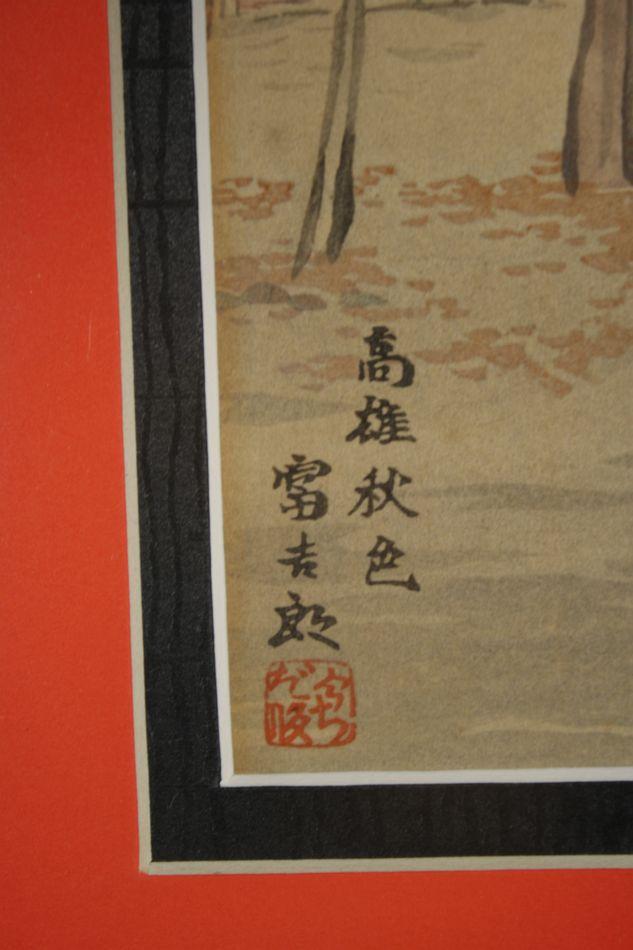 高雄秋色
富吉郎